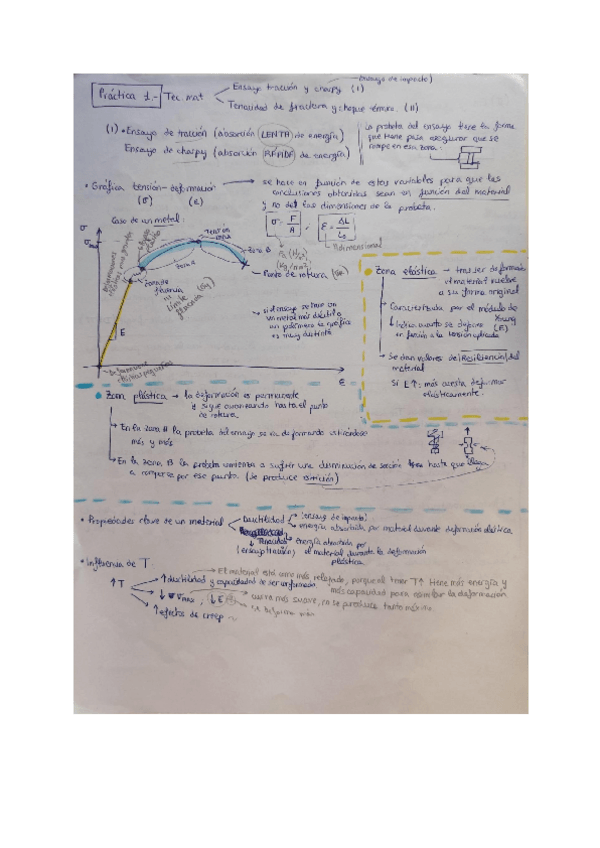 Práctica 1.- Tec. mat
Ensayo tracción y charpy (I)
(ensayo de impacto)
Tenacidad de fractura y choque térmico. (II)
(I) • Ensayo de tracción (absorción LENTA de energía)
Ensayo de charpy (absorción RÁPIDA de energía)
La probeta del ensayo tiene la forma
que tiene para asegurar que se
rompe en esa zona:
• Gráfica tensión-deformación
(σ) (ε)
se hace en función de estas variables para que las
conclusiones obtenidas sean en función del material
y no de las dimensiones de la probeta.
σ = F/A ; ε = ΔL/L₀
Adimensional
(Kg/mm²)
Caso de un metal:
σ
σmax
Zona A
Zona B
Punto de rotura
Zona de
fluencia
Límite
fluencia (σy)
E
ε
si el ensayo se hace en
un metal más dúctil o
un polímero la gráfica
es muy distinta
• Zona elástica → tras ser deformado
el material vuelve
a su forma original
Caracterizada por el módulo de
Young
(E)
Indica cuánto se deforma
en función a la tensión aplicada
Se dan valores de Resiliencia del
material
más cuesta deformar
elásticamente.
• Zona plástica → la deformación es permanente
y sigue aumentando hasta el punto
de rotura.
→ En la zona A la probeta del ensayo se va deformando
más y más
→ En la zona B la probeta comienza a sufrir una disminución de sección hasta que llega
a romperse por ese punto. (Se produce estricción)
• Propiedades clave de un material
Ductilidad
(ensayo de impacto)
energía absorbida por material durante deformación elástica.
Tenacidad
(ensayo tracción)
energía absorbida por
el material durante la deformación
plástica.
• Influencia de T:
↑ T
↑ ductilidad y capacidad de ser conformado.
El material está como más relajado, porque al tener T↑ tiene más energía y
más capacidad para asimilar la deformación
↓ σmax ; ↓ E
curva más suave, no se produce tanto máximo.
Se deforma más
↑ efectos de creep ~